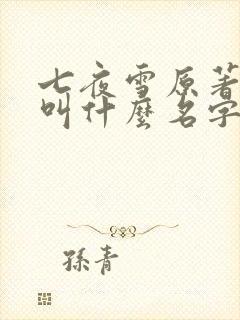 七夜雪原著
叫什麼名字
孫青